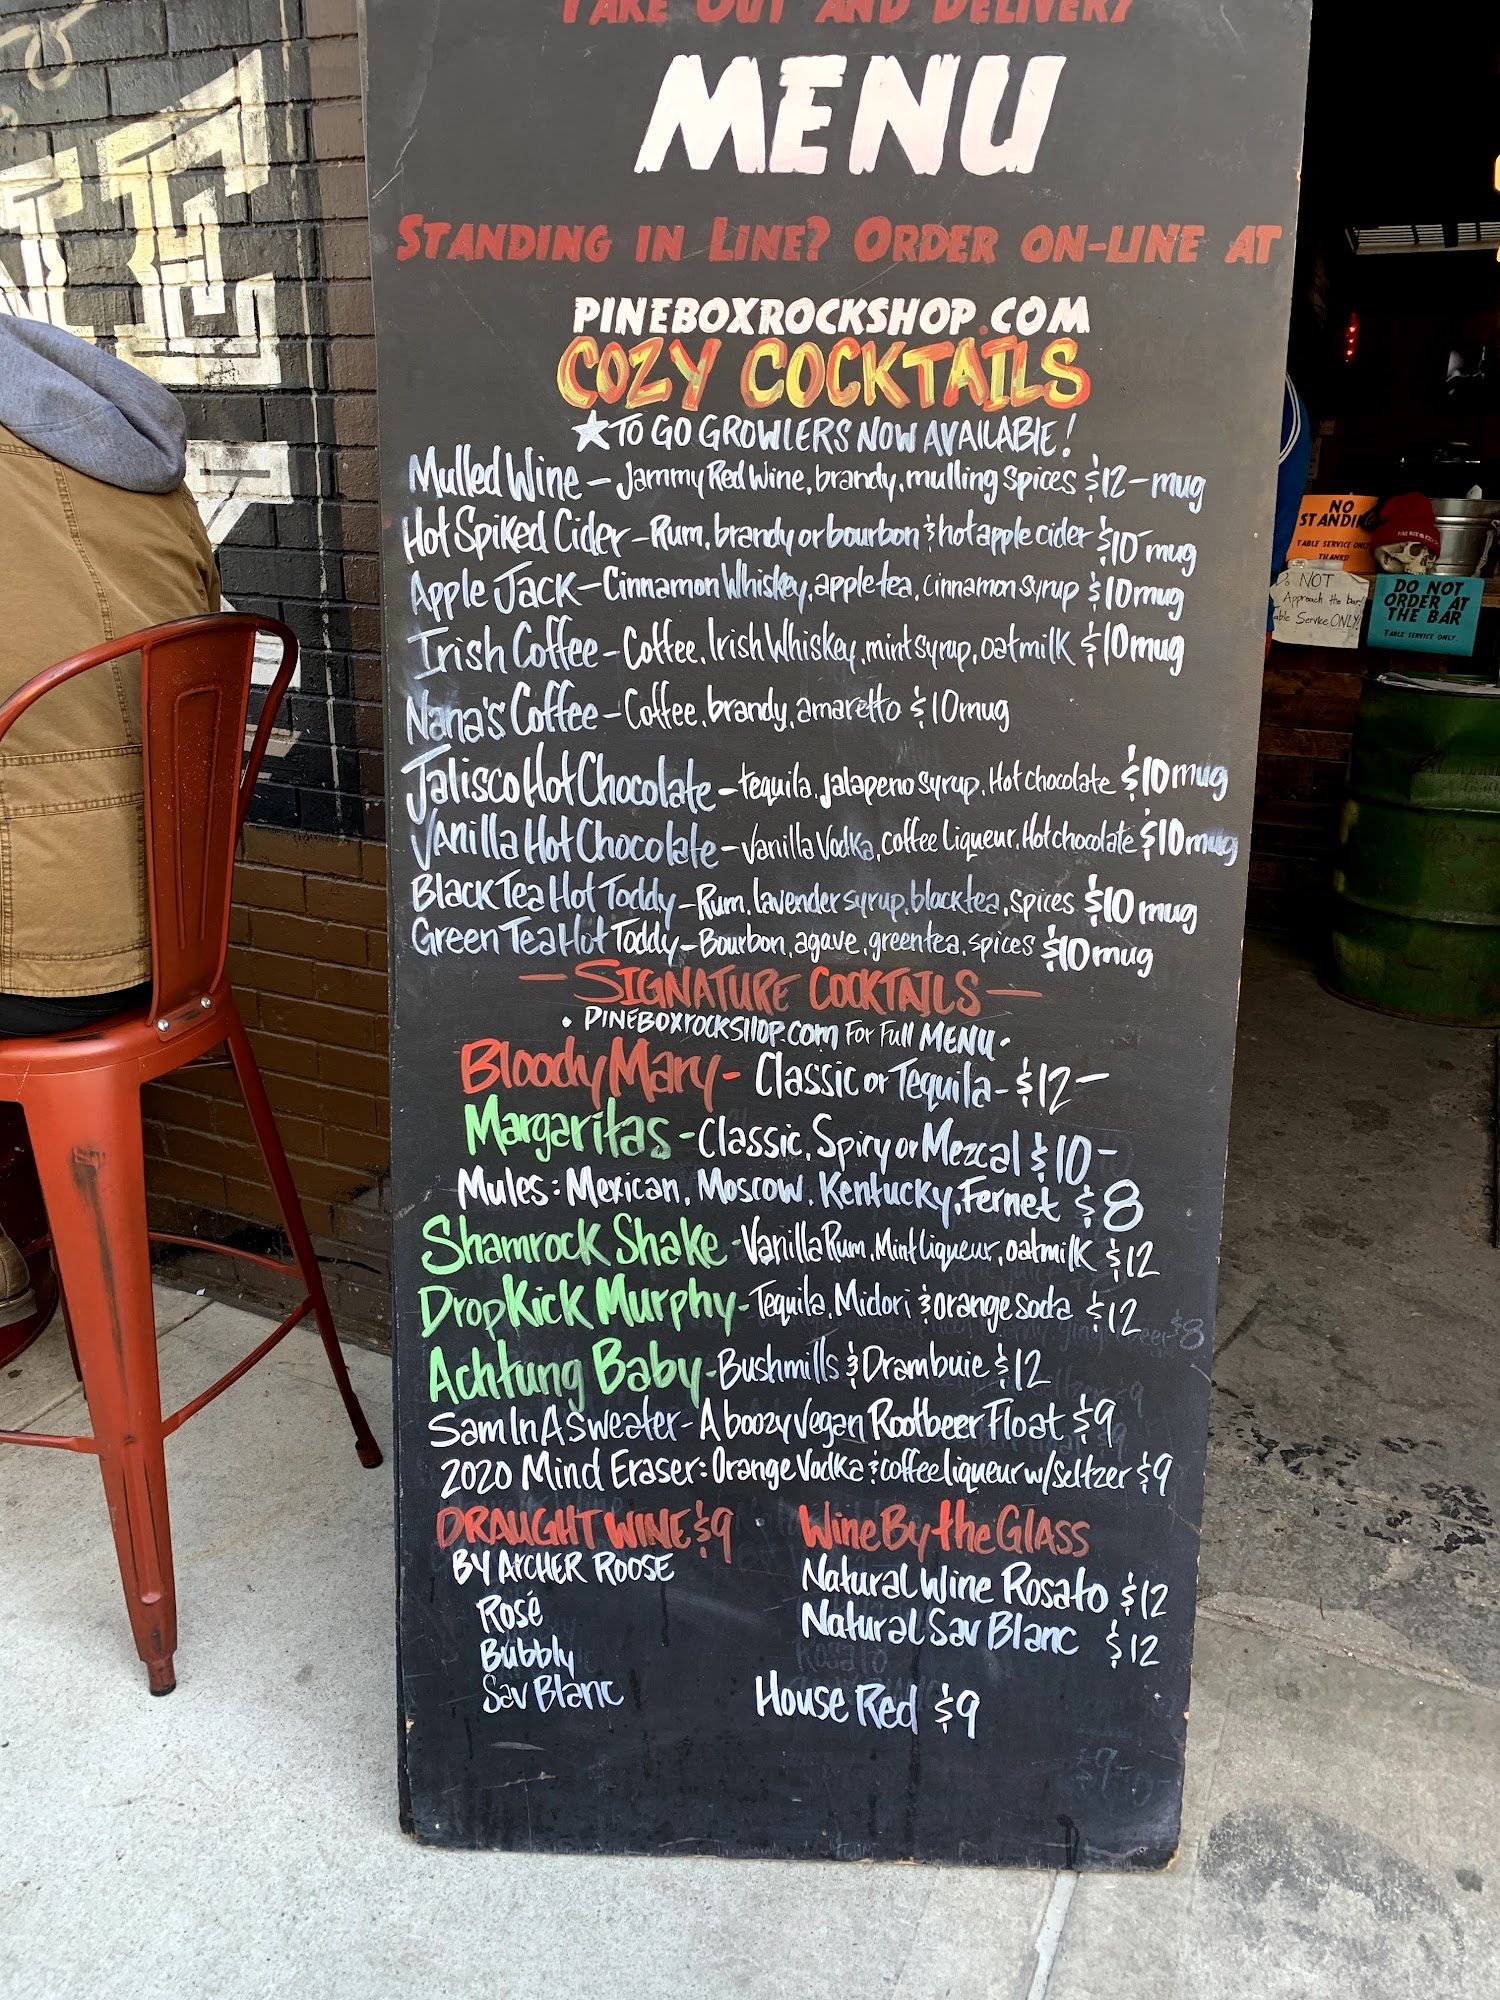 TAKE OUT AND DELIVERY
MENU
STANDING IN LINE? ORDER ON-LINE AT
PINEBOXROCKSHOP.COM
COZY COCKTAILS
★TO GO GROWLERS NOW AVAILABLE!
Mulled Wine – Jammy Red Wine, brandy, mulling spices $12 – mug
Hot Spiked Cider – Rum, brandy or bourbon & hot apple cider $10 mug
Apple Jack – Cinnamon Whiskey, apple tea, cinnamon syrup $10 mug
Irish Coffee – Coffee, Irish Whiskey, mint syrup, oatmilk $10 mug
Nana's Coffee – Coffee, brandy, amaretto $10 mug
Jalisco Hot Chocolate – tequila, jalapeno syrup, Hot chocolate $10 mug
Vanilla Hot Chocolate – Vanilla Vodka, coffee Liqueur, Hot chocolate $10 mug
Black Tea Hot Toddy – Rum, lavender syrup, black tea, spices $10 mug
Green Tea Hot Toddy – Bourbon, agave, green tea, spices $10 mug
– SIGNATURE COCKTAILS –
• PINEBOXROCKSHOP.com For Full MENU •
Bloody Mary - Classic or Tequila - $12 –
Margaritas - Classic, Spicy or Mezcal $10 –
Mules: Mexican, Moscow, Kentucky, Fernet $8
Shamrock Shake - Vanilla Rum, Mint liqueur, oatmilk $12
DropKick Murphy - Tequila, Midori & orange soda $12
Achtung Baby - Bushmills & Drambuie $12
Sam In A Sweater - A boozy Vegan Rootbeer Float $9
2020 Mind Eraser: Orange Vodka & coffee liqueur w/ Seltzer $9
DRAUGHT WINE $9
BY ArCHER ROOSE
Rosé
Bubbly
Sav Blanc
Wine By the GLASS
Natural Wine Rosato $12
Natural Sav Blanc $12
House Red $9
NO
STANDING
TABLE SERVICE ONLY
THANKS!
Do NOT
Approach the bar!
Table Service ONLY!
DO NOT
ORDER AT
THE BAR
TABLE SERVICE ONLY